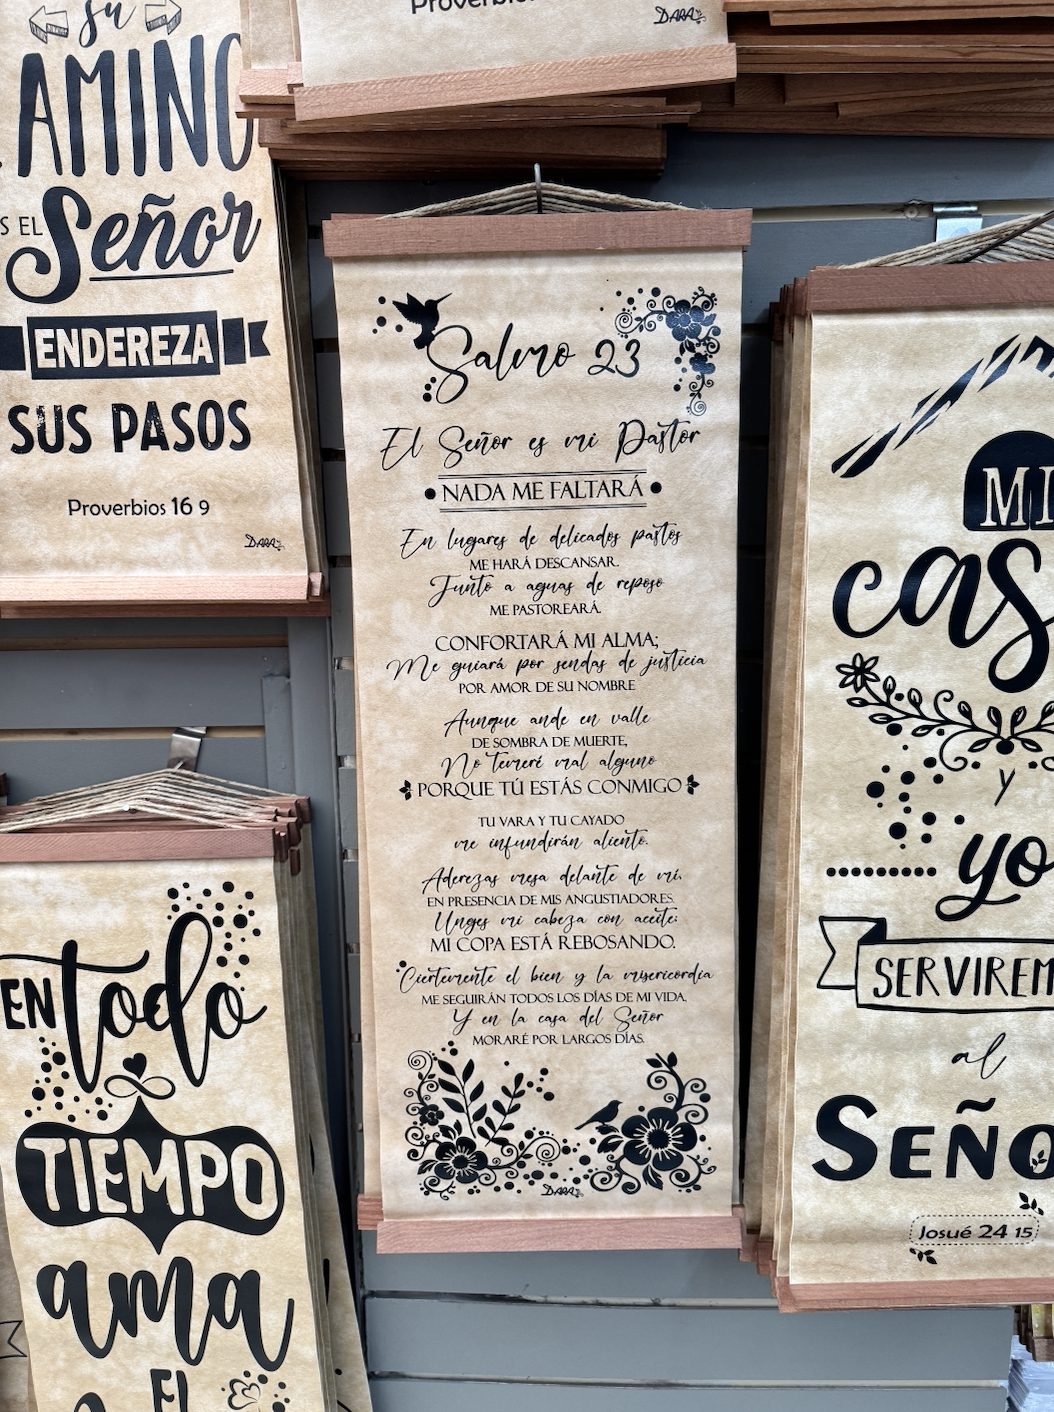 Proverbios
DARA
su
AMINO
S EL
Señor
ENDEREZA
SUS PASOS
Proverbios 16 9
DARA
Salmo 23
El Señor es mi Pastor
NADA ME FALTARÁ
En lugares de delicados pastos
ME HARÁ DESCANSAR.
Junto a aguas de reposo
ME PASTOREARÁ.
CONFORTARÁ MI ALMA;
Me guiará por sendas de justicia
POR AMOR DE SU NOMBRE
Aunque ande en valle
DE SOMBRA DE MUERTE,
No temeré mal alguno
PORQUE TÚ ESTÁS CONMIGO
TU VARA Y TU CAYADO
me infundirán aliento.
Aderezas mesa delante de mí.
EN PRESENCIA DE MIS ANGUSTIADORES.
Unges mi cabeza con aceite:
MI COPA ESTÁ REBOSANDO.
Ciertemente el bien y la misericordia
ME SEGUIRÁN TODOS LOS DÍAS DE MI VIDA,
Y en la casa del Señor
MORARÉ POR LARGOS DÍAS.
DARA
MI
cas
y
yo
SERVIREM
al
SEÑO
Josué 24 15
EN todo
TIEMPO
ama
El